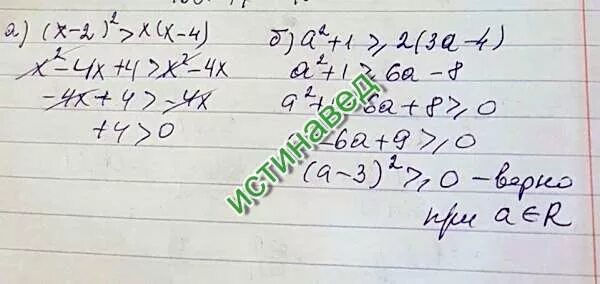 а) (x-2)² > x(x-4)
x²-4x+4 > x²-4x
-4x+4 > -4x
+4 > 0
б) a²+1 ⩾ 2(3a-4)
a²+1 ⩾ 6a-8
a²+1 6a+8 ⩾ 0
-6a+9 ⩾ 0
(a-3)² ⩾ 0 - верно
при a∈R
истинавед